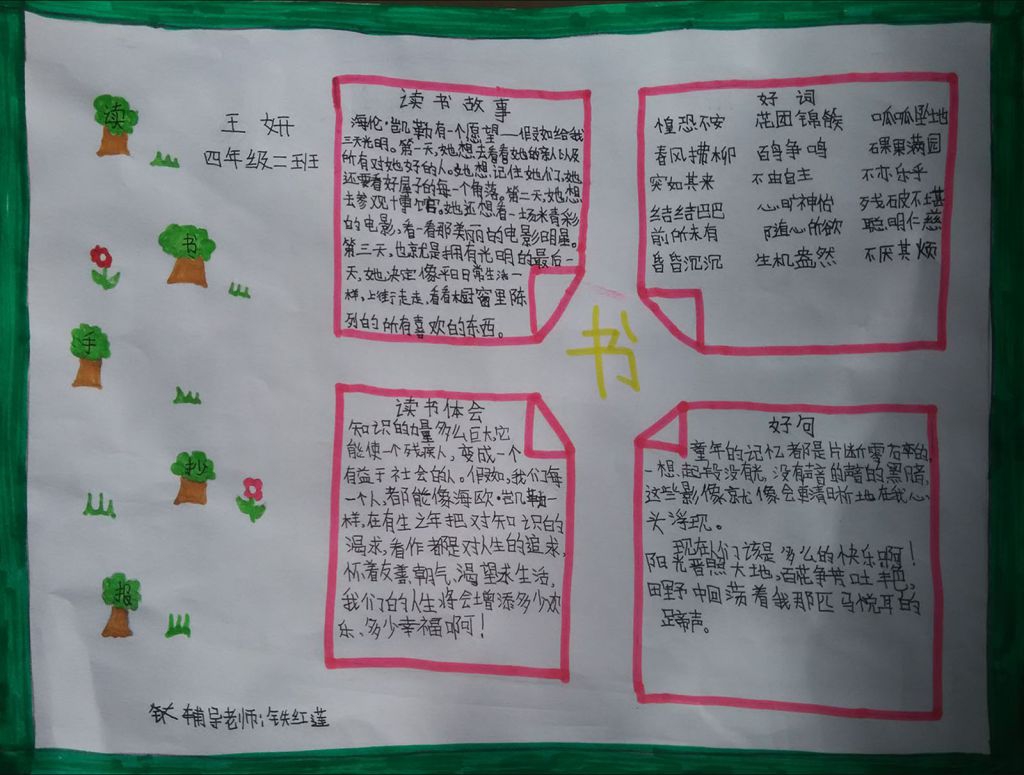 读
书
手
抄
报
王妍
四年级二班
读书故事
海伦·凯勒有一个愿望——假如给我
三天光明。第一天,她想去看看她的亲人以及
所有对她好的人。她想记住她们,她
还要看好屋子的每一个角落。第二天,她想
去参观博物馆。她还想看一场精彩
的电影,看一看那美丽的电影明星。
第三天,也就是拥有光明的最后一
天,她决定像平日日常生活一
样,上街走走,看看橱窗里陈
列的所有喜欢的东西。
好词
惶恐不安 花团锦簇 呱呱坠地
春风拂柳 百鸟争鸣 硕果满园
突如其来 不由自主 不亦乐乎
结结巴巴 心旷神怡 残破不堪
前所未有 随心所欲 聪明仁慈
昏昏沉沉 生机盎然 不厌其烦
书
读书体会
知识的力量多么巨大,它
能使一个残疾人,变成一个
有益于社会的人。假如,我们每
一个人都能像海欧·凯勒一
样,在有生之年把对知识的
渴求,看作都是对人生的追求,
怀着友善,朝气,渴望来生活,
我们的人生将会增添多少欢
乐、多少幸福啊!
好句
童年的记忆都是片断零碎的,
一想起
没有声音的
的黑暗,
这些影像就像会更清晰地在我心
头浮现。
现在人们该是多么的快乐啊!
阳光普照大地,百花争芳吐艳,
田野中回荡着我那匹马悦耳的
蹄声。
辅导老师:铁红莲